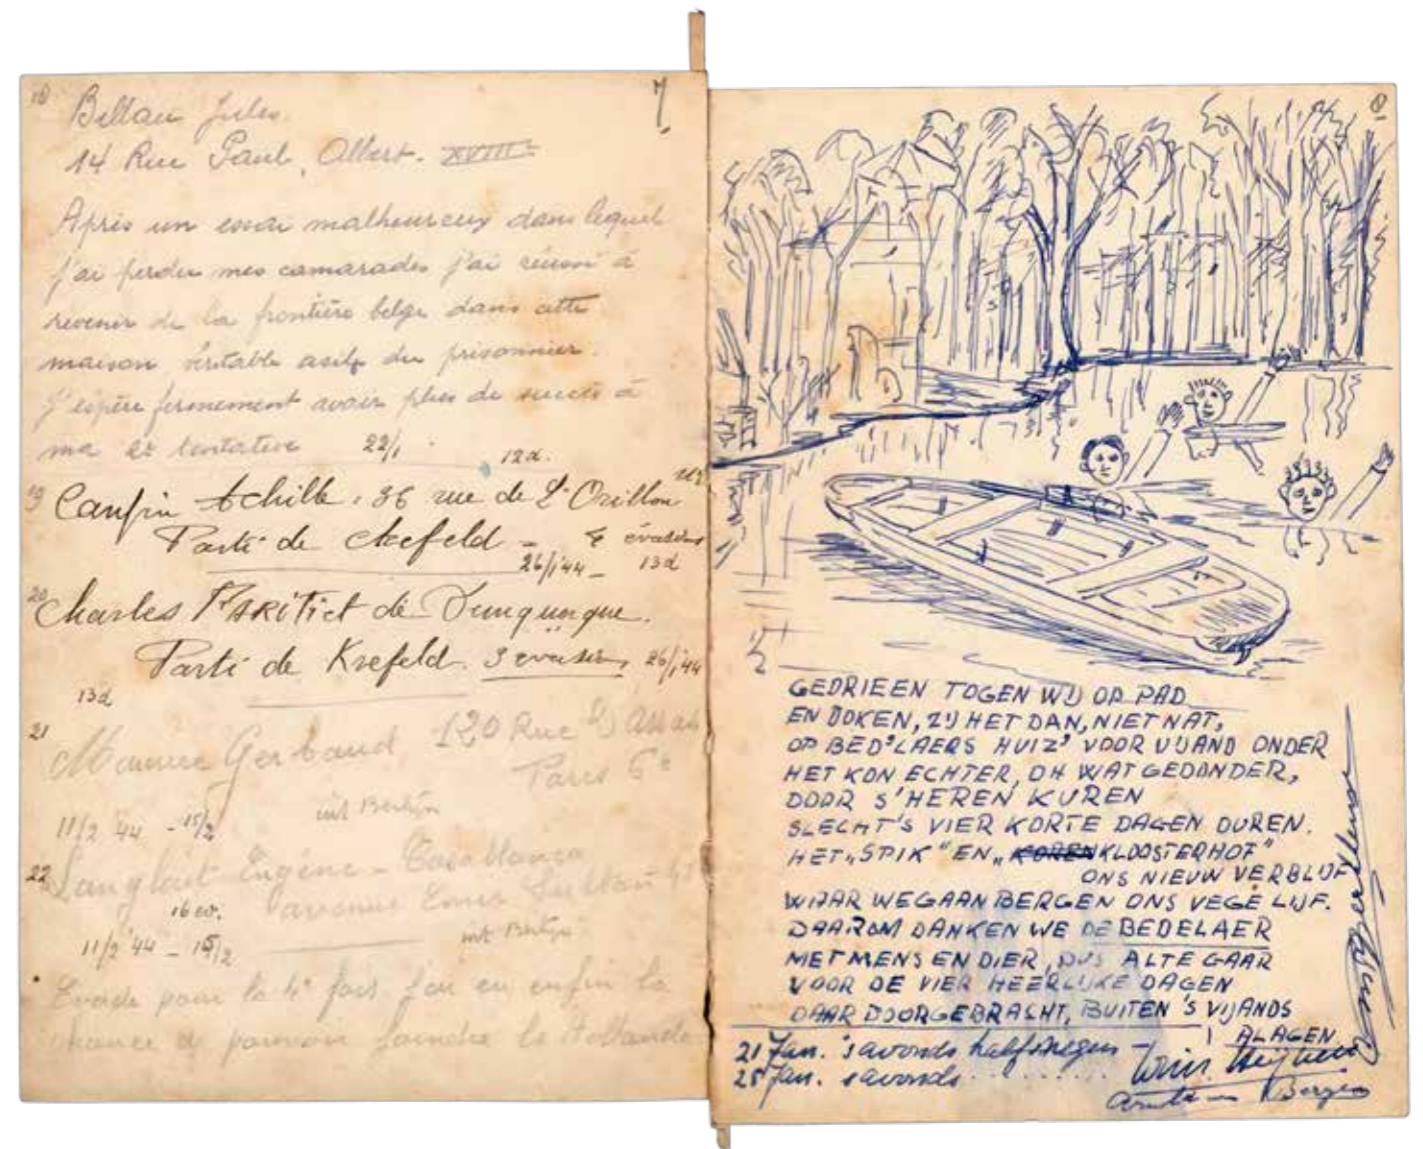 18
7
Bellau Jules.
14 Rue Paul, Albert. XVIIIe
Après un essai malheureux dans lequel
j'ai perdu mes camarades j'ai réussi à
revenir de la frontière belge dans cette
maison véritable asile du prisonnier.
J'espère fermement avoir plus de succès à
ma 2e tentative 22/1 12d.
19 Canfin Achille. 36 rue de L'Orillon
Parti de Crefeld - 4 évasions
26/1 '44 - 13d
20 Charles de Dunquerque.
Parti de Krefeld. 3 evasions 26/1 '44
13d
21
Maurice Gerbaud, 120 Rue d'Assas
Paris 6e
11/2 '44 - 15/2
22 Eugène - Casablanca
avenue
11/2 '44 - 15/2
Evadé pour la 4e fois j'ai eu enfin la
chance de pouvoir joindre la Hollande
8
GEDRIEEN TOGEN WIJ OP PAD
EN DOKEN, ZIJ HET DAN, NIET NAT,
OP BED'LAERS HUIZ' VOOR VIJAND ONDER
HET KON ECHTER, OH WAT GEDONDER,
DOOR S'HEREN KUREN
SLECHT'S VIER KORTE DAGEN DUREN.
HET „SPIK" EN „KOREN KLOOSTERHOF"
ONS NIEUW VERBLIJF
WAAR WE GAAN BERGEN ONS VEGE LIJF.
DAAROM DANKEN WE DE BEDELAER
MET MENS EN DIER, DUS ALTEGAAR
VOOR DE VIER HEERLIJKE DAGEN
DAAR DOORGEBRACHT, BUITEN 'S VIJANDS
LAGEN
21 Jan. 's avonds half negen -
25 Jan. s avonds
Bergen